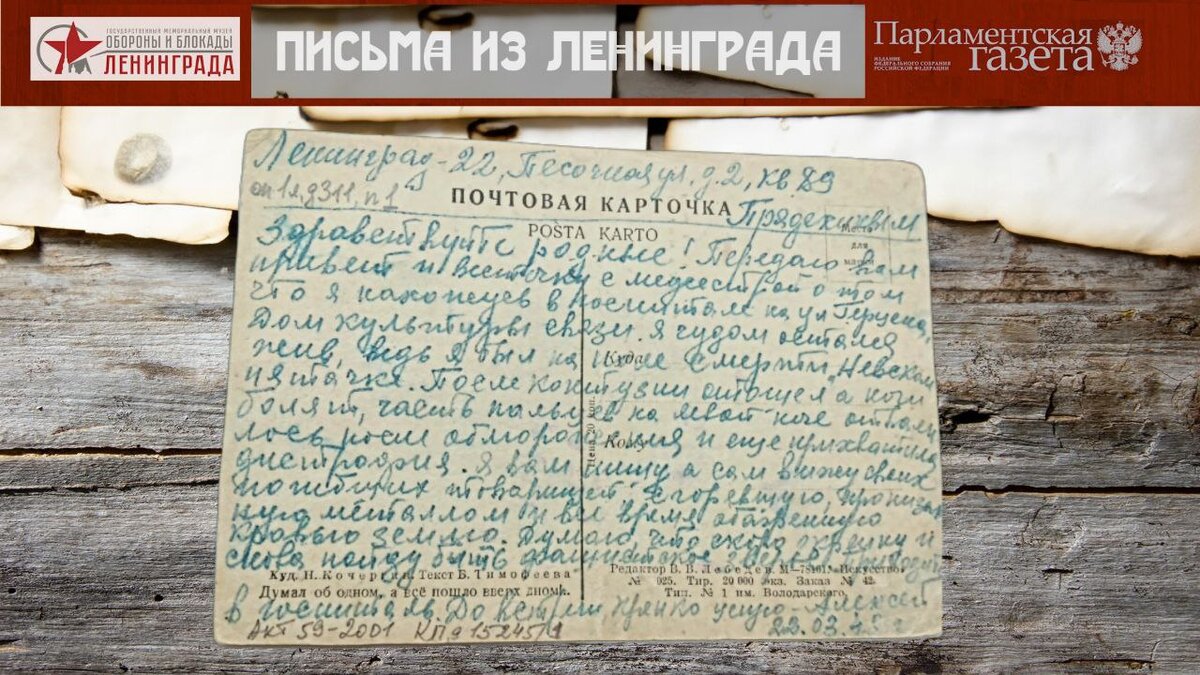 ГОСУДАРСТВЕННЫЙ МЕМОРИАЛЬНЫЙ МУЗЕЙ
ОБОРОНЫ И БЛОКАДЫ
ЛЕНИНГРАДА
ПИСЬМА ИЗ ЛЕНИНГРАДА
Парламентская
газета
ИЗДАНИЕ
ФЕДЕРАЛЬНОГО СОБРАНИЯ
РОССИЙСКОЙ ФЕДЕРАЦИИ
Ленинград-22, Песочная ул. д. 2, кв 89
оп 1л, д311, п1
ПОЧТОВАЯ КАРТОЧКА
POŜTA KARTO
Место
для
марки
Здравствуйте родные! Передаю вам
привет и весточку с медсестрой о том
что я нахожусь в госпитале на ул Герцена,
Дом культуры связи. Я чудом остался
жив, ведь я был на смерти, Невском
Куда
пятачке. После контузии отошел а ноги
болят, часть пальцев на левой ноге отвали
Цена 20 коп.
Кому
лось после обморожения и еще прихватила
дистрофия. Я вам пишу а сам вижу своих
погибших товарищей, сгоревшую, пронизан
ную металлом и все время обагренную
кровью землю. Думаю, что скоро окрепну и
снова пойду бить фашистское
Худ. Н. Кочергин. Текст Б. Тимофеева
Думал об одном, а всё пошло вверх дном.
Редактор В. В. Лебедев. М—78101. "Искусство"
№ 025. Тир. 20 000 экз. Заказ № 42.
Тип. № 1 им. Володарского.
в госпиталь. До встречи крепко целую - Алексей
Акт 59-2001